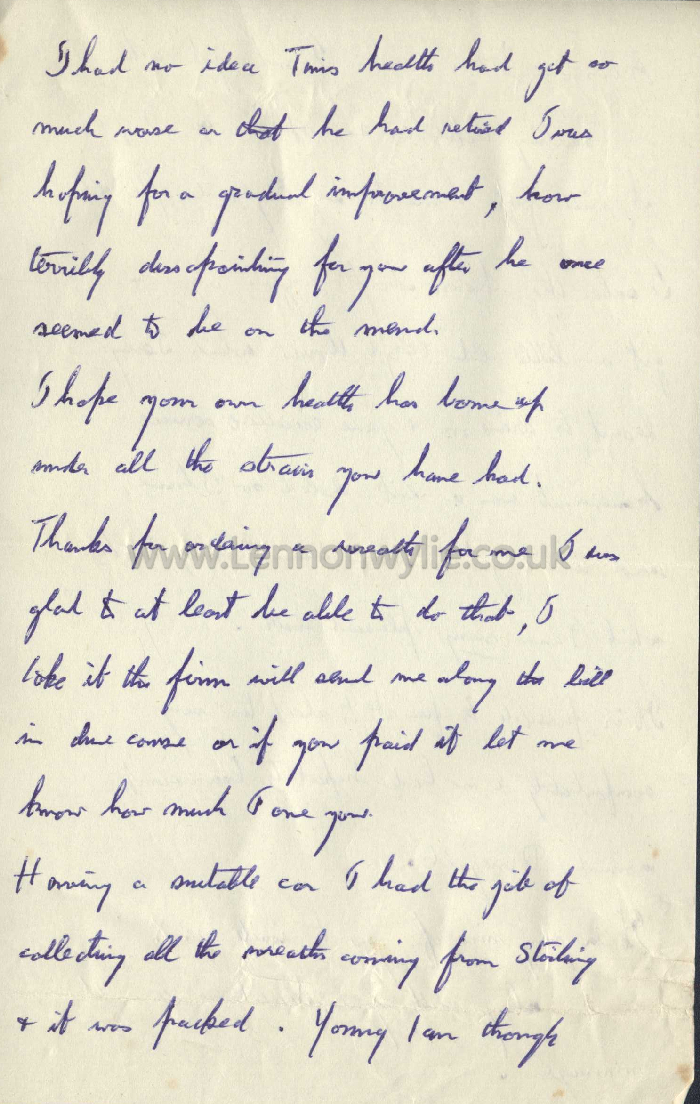 I had no idea Tims health had got so
much worse or that he had retired I was
hoping for a gradual improvement, how
terribly dissapointing for you after he once
seemed to be on the mend.
I hope your own health has borne up
under all the strain you have had.
Thanks for ordering a wreath for me I was
www.Lennonwylie.co.uk
glad to at least be able to do that, I
take it the firm will send me along the bill
in due course or if you paid it let me
know how much I owe you.
Having a suitable car I had the job of
collecting all the wreaths coming from Stirling
& it was packed. Young Ian though